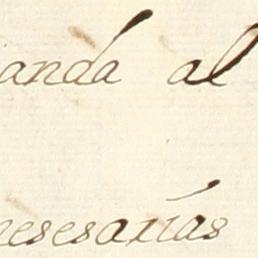 anda al
nesesarias